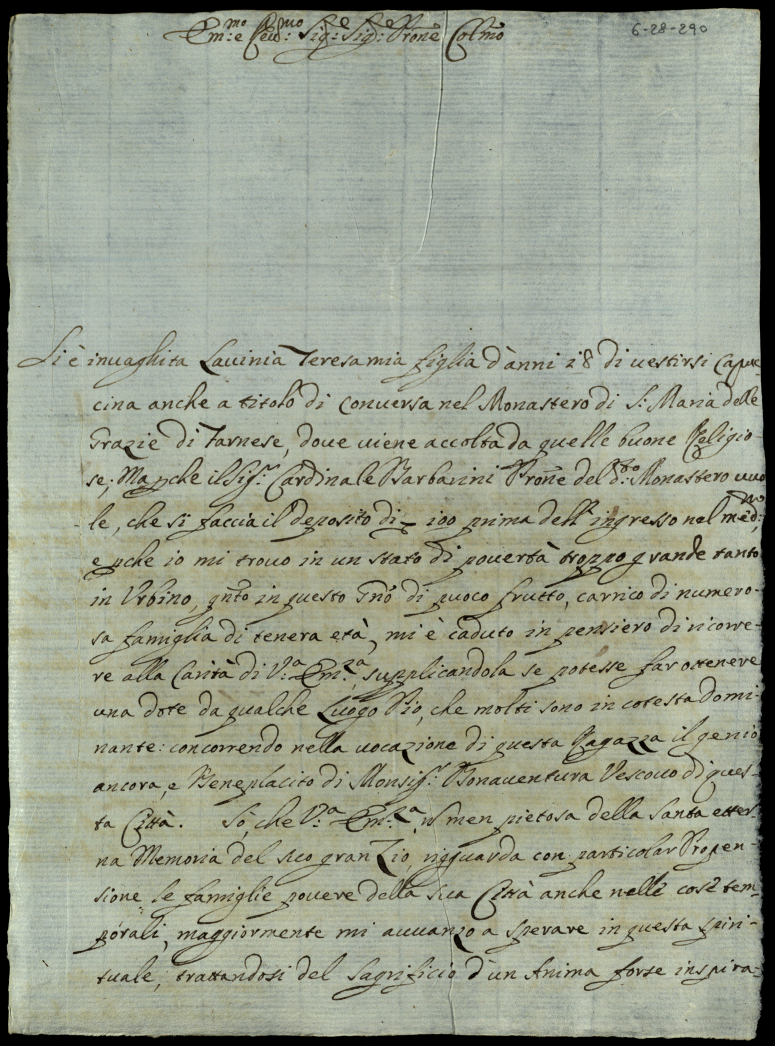 Em.mo e Rev.mo Sig.e Sig.e Prone Colmo
6-28-290
Si è invaghita Lavinia Teresa mia figlia d'anni 28 di vestirsi Capuc-
cina anche a titolo di Conversa nel Monastero di S. Maria delle
Grazie di Farnese, dove viene accolta da quelle buone Religio-
se; Ma pche il Sig.r Cardinale Barbarini Prone del d.to Monastero vuo-
le, che si faccia il deposito di 100 prima dell'ingresso nel med.mo
e pche io mi trovo in un stato di povertà troppo grande tanto
in Urbino, qnto in questo Gno di puoco frutto, carrico di numero-
sa famiglia di tenera età, mi è caduto in pensiero di ricorre-
re alla Carità di V.a Em.za, supplicandola se potesse far ottenere
una dote da qualche Luogo Pio, che molti sono in cotesta Domi-
nante: concorrendo nella vocazione di questa Ragazza il genio
ancora, e Beneplacito di Monsig.r Bonaventura Vescovo di ques-
ta Città. Sò, che V.a Em.za, non men pietosa della Santa etter-
na Memoria del suo gran Zio, rigguarda con particolar Propen-
sione le famiglie povere della sua Città anche nelle cose tem-
porali, maggiormente mi avvanzo a sperare in questa spiri-
tuale, trattandosi del Sagrificio d'un Anima forse inspira-